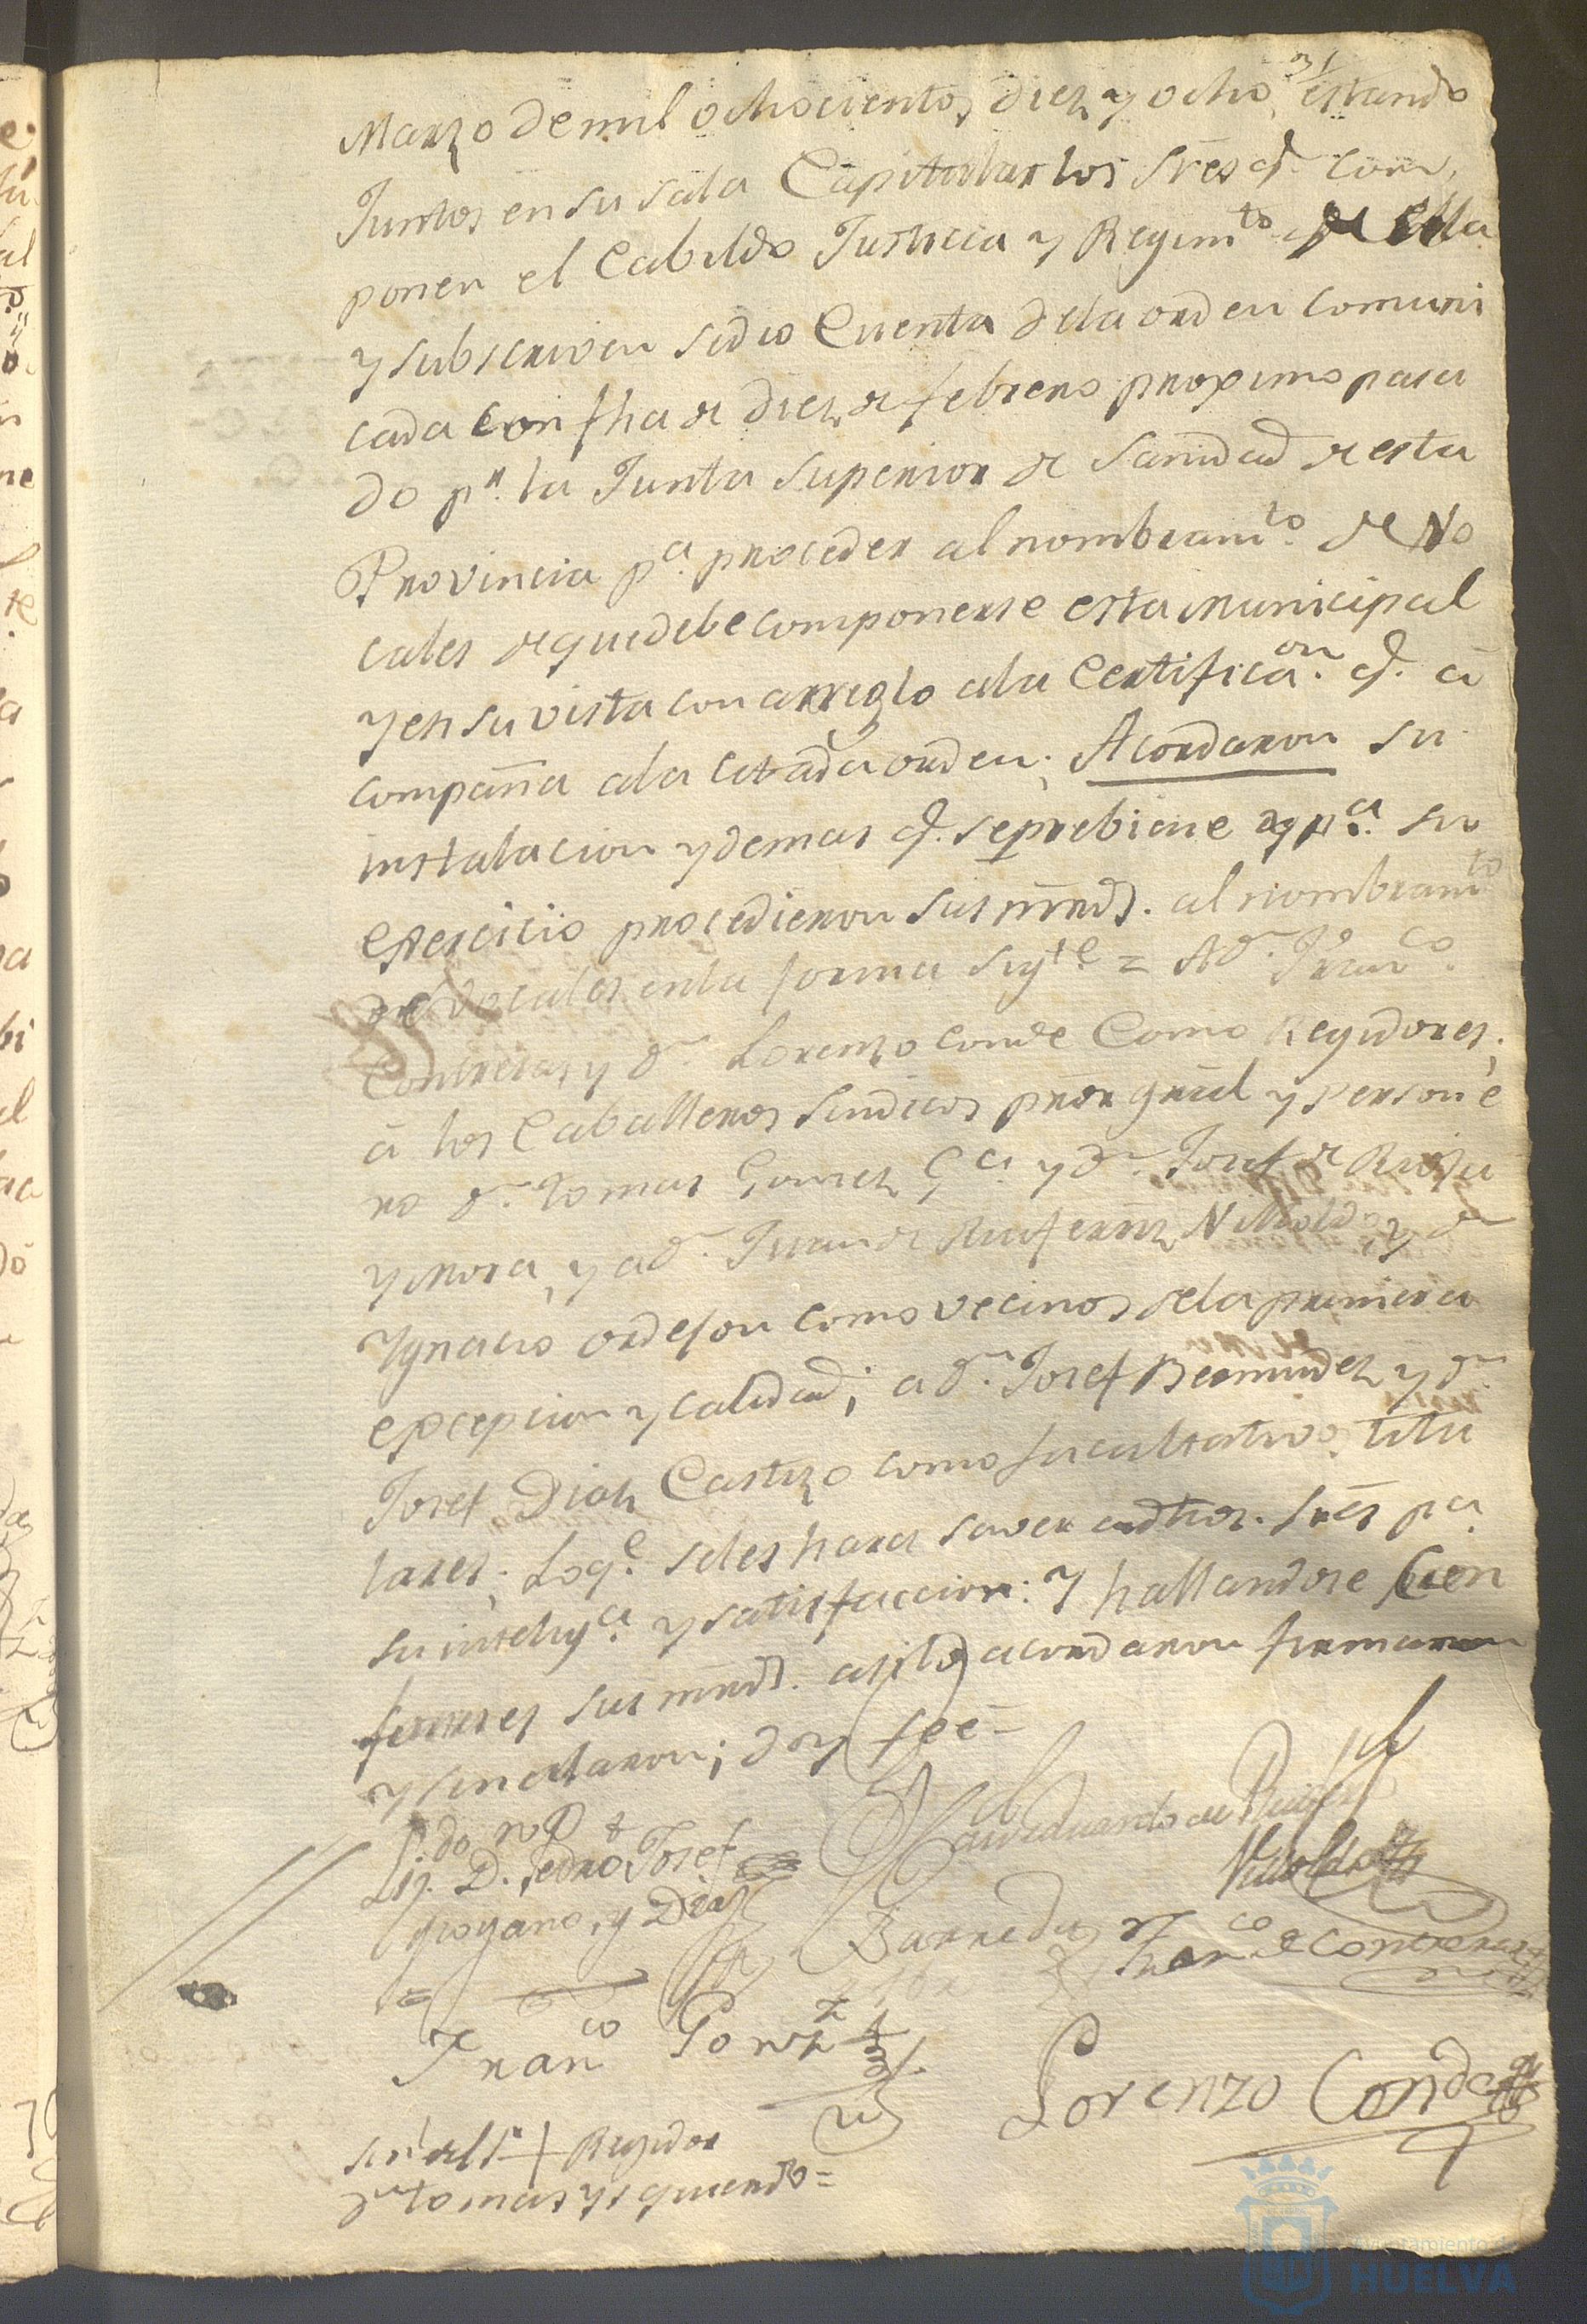 31
Marzo de mil ochocientos diez y ocho, estando
Juntos en su sala Capitular los Sres q.e com,
ponen el Cabildo Justicia y Regim.to de ella
y subscriven se dio Cuenta dela orden comuni
cada con fha de diez de febrero proximo pasa
do p.r la Junta Superior de Sanidad de esta
Provincia p.a proceder al nombram.to de Vo
cales de que debe componerse esta Municipal
y en su vista con arreglo ala Certificaon. q.e a
compaña ala citada orden; Acordaron su
instalacion y demas q.e se prebiene y p.a su
exercicio procedieron sus mrds. al nombram.to
de vocales enla forma sigte. = A D.n Fran.co
Contreras y D.n Lorenzo Conde Como Regidores;
á los Caballeros Sindicos pror gral y Persone
ro D.n Tomas Gomez G.a y D.n Josef de Rioja
y Mora, y a D.n Juan de Ruifernz Villoldo, y D.n
Ygnacio ordejon como vecinos dela primera
excepcion y calidad; a D.n Josef Bermudez y D.n
Josef Diaz Castizo como facultativos titu
lares; Loq.e seles hara saver a dhos. Sres pa.
su intelig.a y satisfaccion: Y hallandose Con
formes sus mrds. asi lo acordaron firmaron
y señalaron; doy feé =
Liz.do D. Pedro Josef
Moyano, y Diaz
Juan Eduardo de Ruifernz
Villoldo
Barreda
Fran.co de Contreras
Fran.co Gonz.z
Lorenzo Conde
señl del Sr + Regidor
D.n tomas Ysquierdo =
Ayuntamiento de
HUELVA